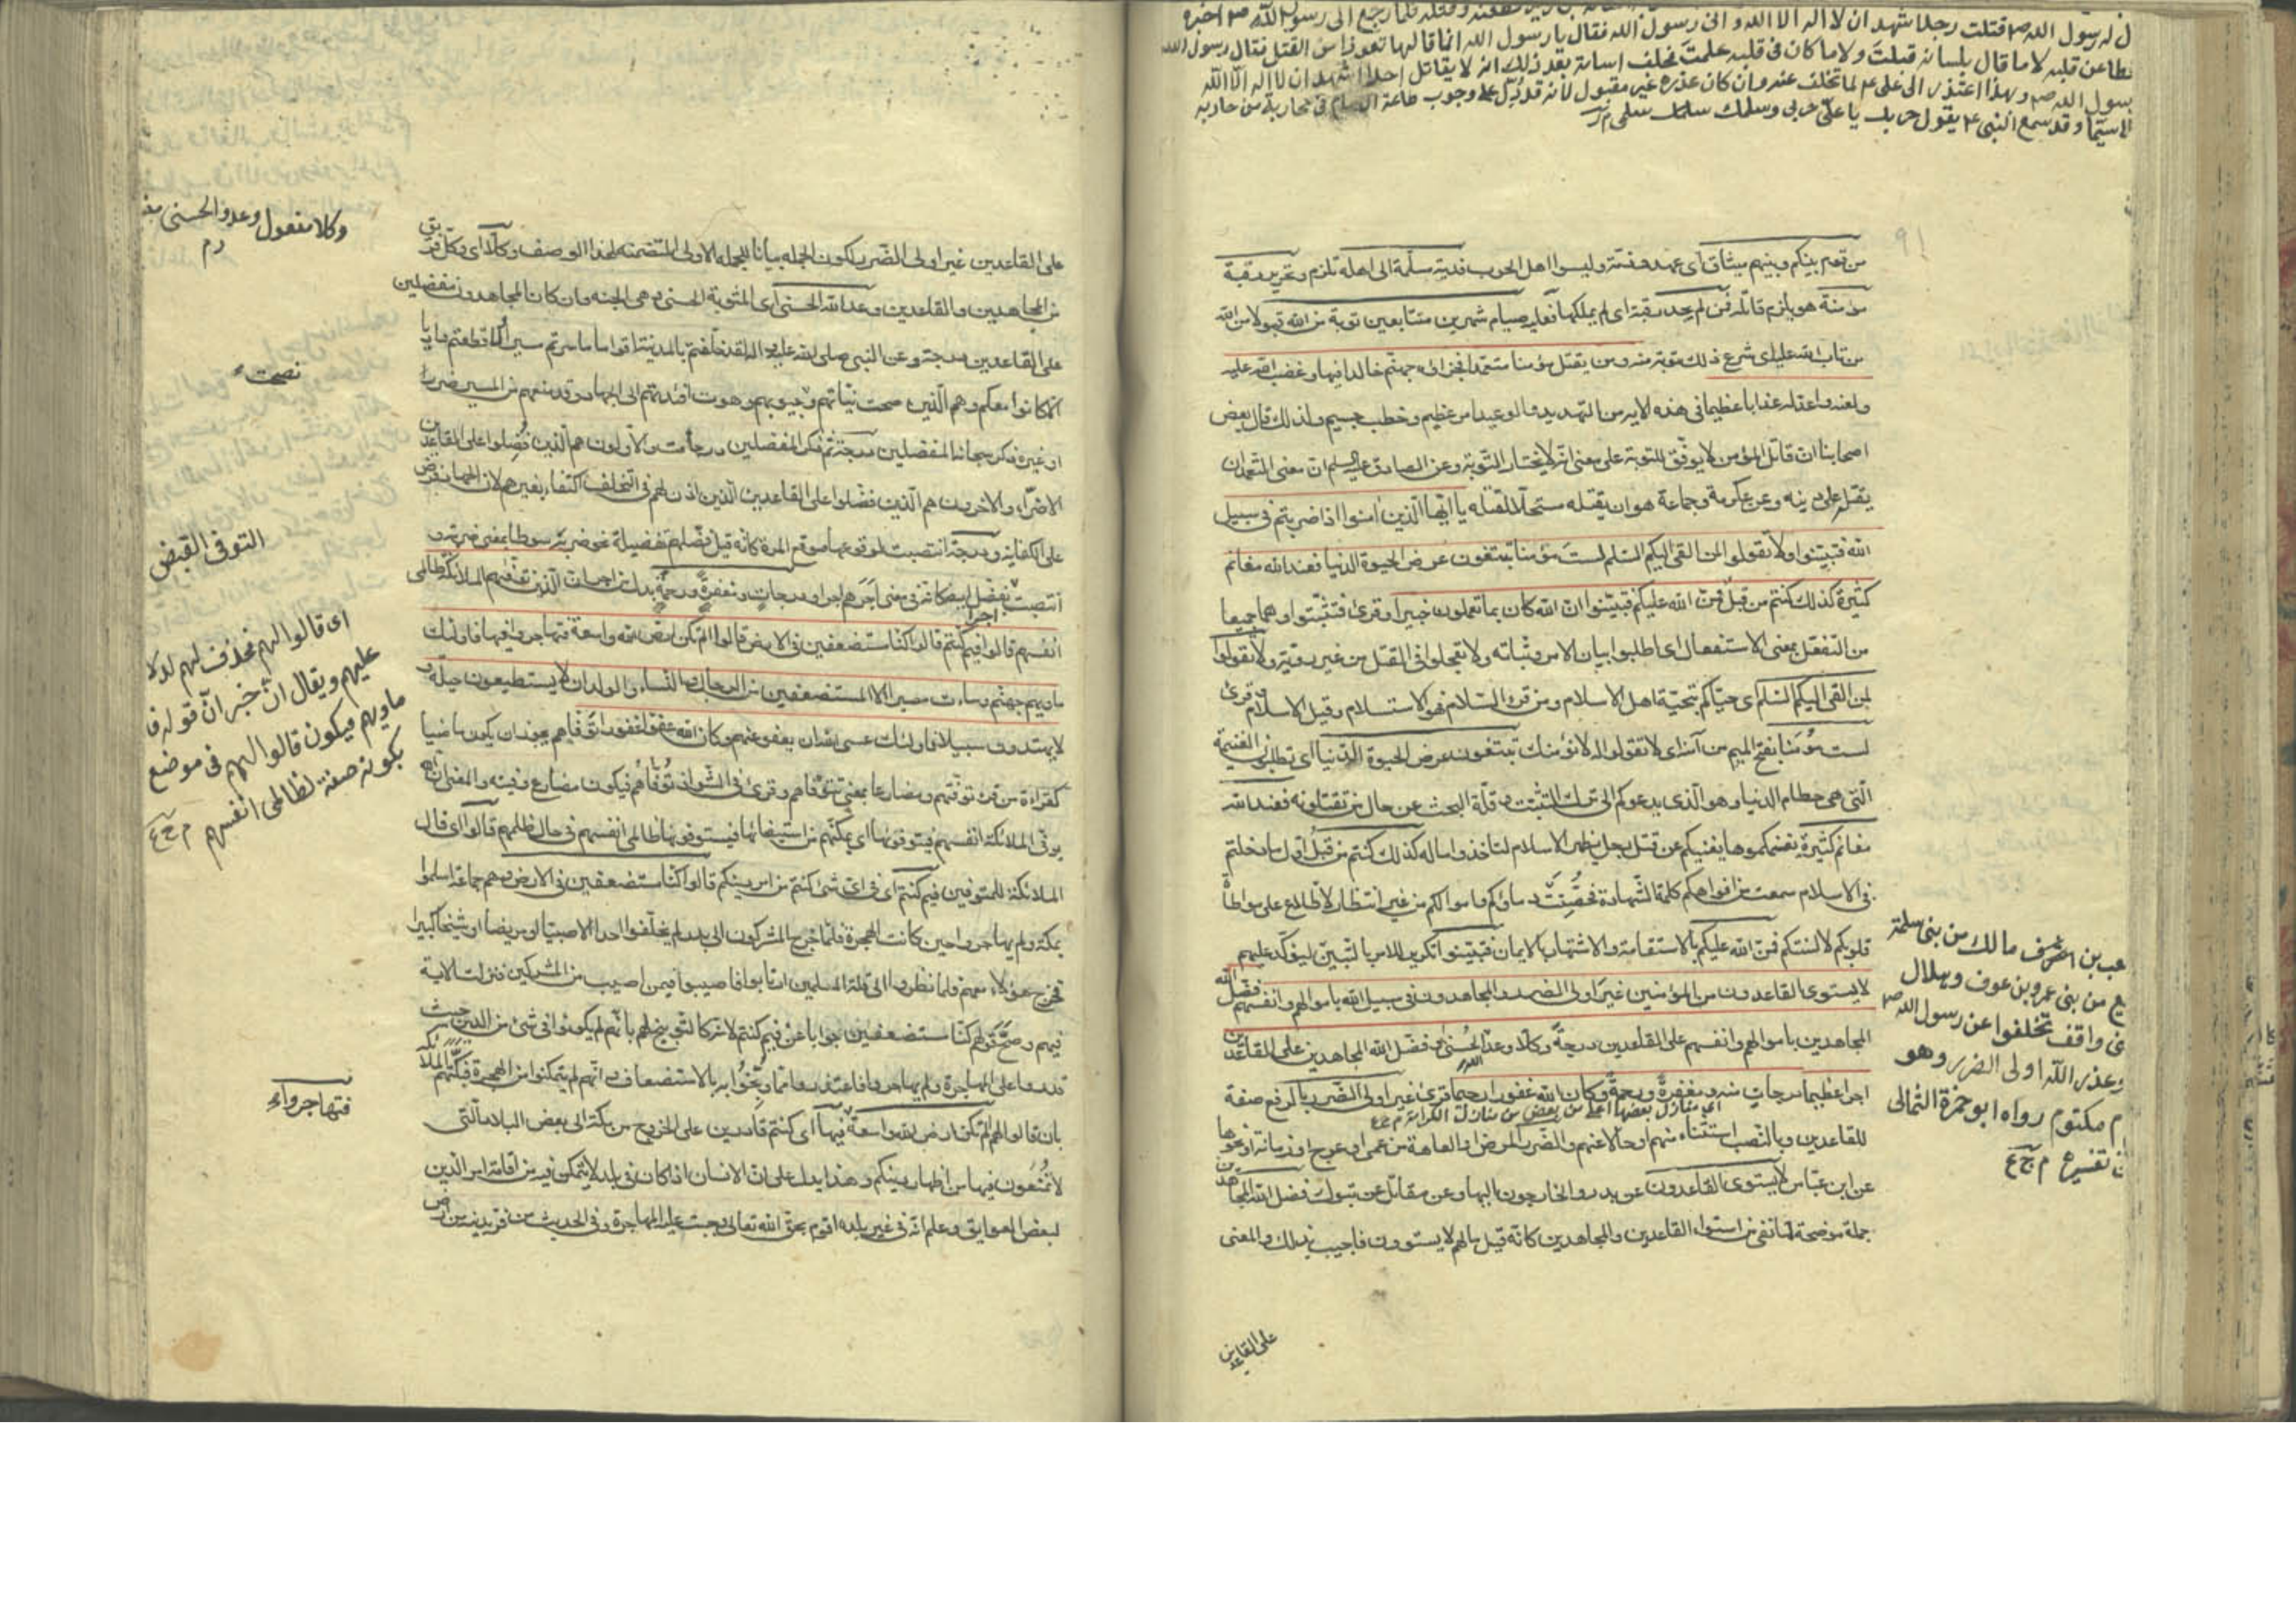 ل له رسول الله ص قتلت رجلا شهد ان لا اله الا الله و انى رسول الله فقال يا رسول الله انما قالها تعوذا من القتل فقال رسول الله
طا عن قلبه لا ما قال بلسانه قبلت ولا ما كان فى قلبه علمت فحلف اسامة بعد ذلك انه لا يقاتل احدا شهد ان لا اله الا الله
رسول الله ص وبهذا اعتذر الى على ع لما تخلف عنه وان كان عذره غير مقبول لانه قد دل على وجوب طاعة الامام فى محاربة من حاربه
لا سيما وقد سمع النبى ع يقول حربك يا على حربى وسلمك سلمى
من قوم بينكم وبينهم ميثاق اى عهد وذمة وليسوا اهل الحرب فدية مسلمة الى اهله تلزم وتحرير رقبة
مؤمنة هو يلزم قاتله فمن لم يجد رقبة اى لم يملكها فعليه صيام شهرين متتابعين توبة من الله قبولا من الله
من تاب الله عليه اى شرع ذلك توبة منه ومن يقتل مؤمنا متعمدا فجزاؤه جهنم خالدا فيها وغضب الله عليه
ولعنه واعد له عذابا عظيما فى هذه الاية من التهديد والوعيد امر عظيم وخطب جسيم ولذلك قال بعض
اصحابنا ان قاتل المؤمن لا يوفق للتوبة على معنى انه لا يختار التوبة وعن الصادق عليه السلم ان معنى التعمد ان
يقتله على دينه وعن عكرمة وجماعة هو ان يقتله مستحلا لقتله يا ايها الذين امنوا اذا ضربتم فى سبيل
الله فتبينوا ولا تقولوا لمن القى اليكم السلم لست مؤمنا تبتغون عرض الحيوة الدنيا فعند الله مغانم
كثيرة كذلك كنتم من قبل فمن الله عليكم فتبينوا ان الله كان بما تعملون خبيرا وقرئ فتثبتوا وهما جميعا
من التفعل بمعنى الاستفعال اى اطلبوا بيان الامر وثباته ولا تعجلوا فى القتل من غير روية ولا تقولوا
لمن القى اليكم السلم اى حياكم بتحية اهل الاسلام ومن قرء السلام فهو الاستسلام وقيل الاسلام وقرئ
لست مؤمنا بفتح الميم من آمنه اى لا تقولوا له لا نؤمنك تبتغون عرض الحيوة الدنيا اى تطلبون الغنيمة
التى هى حطام الدنيا وهو الذى يدعوكم الى ترك التثبت وقلة البحث عن حال من تقتلونه فعند الله
مغانم كثيرة يغنمكموها يغنيكم عن قتل رجل يظهر الاسلام لتاخذوا ماله كذلك كنتم من قبل اول ما دخلتم
فى الاسلام سمعت من افواهكم كلمة الشهادة فحصنت دماؤكم واموالكم من غير انتظار الاطلاع على مواطاة
قلوبكم لالسنتكم فمن الله عليكم بالاستقامة والاشتهار بالايمان فتبينوا تكرير للامر بالتبين ليؤكد عليهم
لا يستوى القاعدون من المؤمنين غير اولى الضرر والمجاهدون فى سبيل الله باموالهم وانفسهم فضل الله
المجاهدين باموالهم وانفسهم على القاعدين درجة وكلا وعد الله الحسنى وفضل الله المجاهدين على القاعدين
اجرا عظيما درجات منه ومغفرة ورحمة وكان الله غفورا رحيما قرئ غير اولى الضرر بالرفع صفة
اى منازل بعضها اعلى من بعض من منازل الكرامة م ع
للقاعدين وبالنصب استثناء منهم او حالا عنهم والضرر المرض او العاهة من عمى او عرج او زمانة او نحوها
عن ابن عباس لا يستوى القاعدون عن بدر والخارجون اليها وعن مقاتل عن تبوك فضل الله المجاهدين
جملة موضحة لما نفى من استواء القاعدين والمجاهدين كانه قيل ما لهم لا يستوون فاجيب بذلك والمعنى
على القاعدين
مالك من بنى سلمة
ع من بنى عمرو بن عوف وهلال
نى واقف تخلفوا عن رسول الله ص
وعذر الله اولى الضرر وهو
م مكتوم رواه ابو حمزة الثمالى
تفسيره م ج ع
على القاعدين غير اولى الضرر لكون الجملة بيانا للجملة الاولى المتضمنة لهذا الوصف وكلا اى وكل فريق
من المجاهدين والقاعدين وعد الله الحسنى اى المثوبة الحسنى وهى الجنة وان كان المجاهدون مفضلين
على القاعدين درجة وعن النبى صلى الله عليه واله لقد خلفتم بالمدينة اقواما ما سرتم مسيرا ولا قطعتم واديا
الا كانوا معكم وهم الذين صحت نياتهم ونصحت جيوبهم وهوت افئدتهم الى الجهاد وقد منعهم من المسير ضرر
او غيره فذكر سبحانه المفضلين درجة ثم ذكر المفضلين درجات والاولون هم الذين فضلوا على القاعدين
الاضراء والاخرون هم الذين فضلوا على القاعدين الذين اذن لهم فى التخلف اكتفاء بغيرهم لان الجهاد فرض
على الكفاية ودرجة انتصبت لوقوعها موقع المرة كانه قيل فضلهم تفضيلة نحو ضربه سوطا بمعنى ضربة و
انتصب اجرا بفضل ايضا كانه فى معنى اجرهم اجرا ودرجات ومغفرة ورحمة بدل من اجرا ان الذين توفيهم الملائكة ظالمى
انفسهم قالوا فيم كنتم قالوا كنا مستضعفين فى الارض قالوا الم تكن ارض الله واسعة فتهاجروا فيها فاولئك
ماويهم جهنم وساءت مصيرا الا المستضعفين من الرجال والنساء والولدان لا يستطيعون حيلة و
لا يهتدون سبيلا فاولئك عسى الله ان يعفو عنهم وكان الله عفوا غفورا توفاهم يجوز ان يكون ماضيا
كقراءة من قرء توفتهم ومضارعا بمعنى تتوفاهم وقرئ فى الشواذ توفاهم فيكون مضارع وفيت والمعنى ان الله
يوفى الملائكة انفسهم فيتوفونها اى يمكنهم من استيفائها فيستوفونها ظالمى انفسهم فى حال ظلمهم قالوا اى قال
الملائكة للمتوفين فيم كنتم اى فى اى شئ كنتم من امر دينكم قالوا كنا مستضعفين فى الارض وهم جماعة اسلموا
بمكة ولم يهاجروا حين كانت الهجرة فلما خرج المشركون الى بدر لم يخلفوا احدا الا صبيا او مريضا او شيخا كبيرا
فخرج هؤلاء معهم فلما نظروا الى قلة المسلمين ارتابوا فاصيبوا فيمن اصيب من المشركين فنزلت الاية
فيهم وصح قولهم كنا مستضعفين جوابا عن فيم كنتم لانه كالتوبيخ لهم بانهم لم يكونوا فى شئ من الدين حيث
قدروا على المهاجرة ولم يهاجروا فاعتذروا مما وبخوا به بالاستضعاف وانهم لم يتمكنوا من الهجرة فبكتهم الملائكة
بان قالوا لهم الم تكن ارض الله واسعة فيها اى كنتم قادرين على الخروج من مكة الى بعض البلاد التى
لا تمنعون فيها من اظهار دينكم وهذا يدل على ان الانسان اذا كان فى بلد لا يتمكن فيه من اقامة امر الدين
لبعض العوايق وعلم انه فى غير بلده اقوم بحق الله تعالى وجبت عليه المهاجرة وفى الحديث من فر بدينه من ارض
وكلا مفعول وعد والحسنى
نصحت
التوفى القبض
اى قالوا لهم فحذف لهم لدلا
عليهم ويقال ان خبر ان قوله فا
ماويهم ويكون قالوا لهم فى موضع
بكونه صفة لظالمى انفسهم م ج ع
فتهاجروا